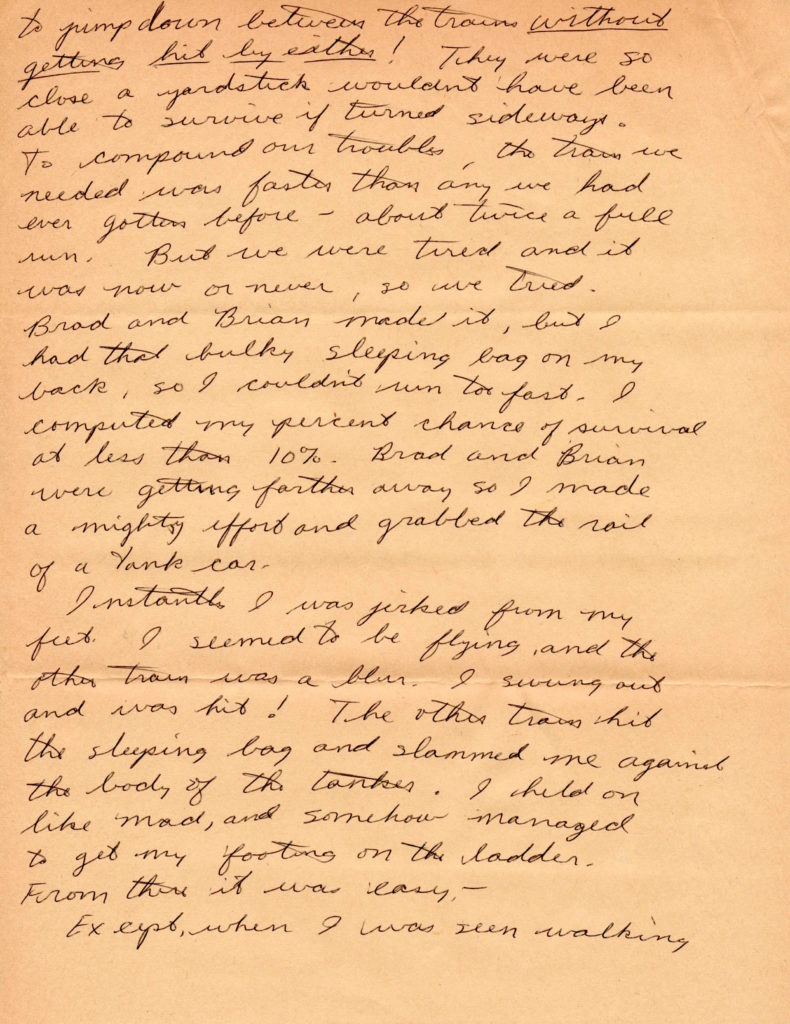 to jump down between the trains without
getting hit by either! They were so
close a yardstick wouldn't have been
able to survive if turned sideways.
To compound our troubles, the train we
needed was faster than any we had
ever gotten before – about twice a full
run. But we were tired and it
was now or never, so we tried.
Brad and Brian made it, but I
had that bulky sleeping bag on my
back, so I couldn't run too fast. I
computed my percent chance of survival
at less than 10%. Brad and Brian
were getting farther away so I made
a mighty effort and grabbed the rail
of a tank car.
Instantly I was jerked from my
feet. I seemed to be flying, and the
other train was a blur. I swung out
and was hit! The other train hit
the sleeping bag and slammed me against
the body of the tanker. I held on
like mad, and somehow managed
to get my footing on the ladder.
From there it was easy,–
Except, when I was seen walking